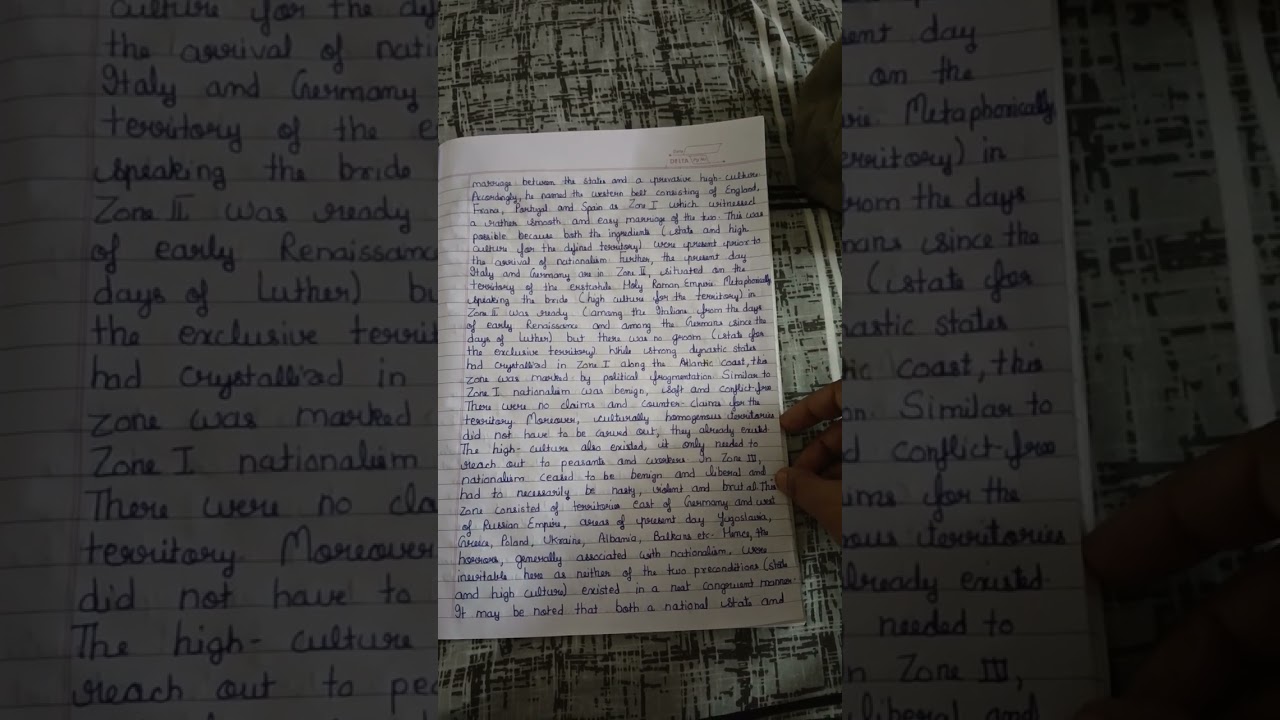 Date
DELTA Pg No.
marriage between the states and a pervasive high-culture.
Accordingly, he named the western belt consisting of England,
Frana, Portugal and Spain as Zone I which witnessed
a rather smooth and easy marriage of the two. This was
possible because both the ingredients (state and high
culture for the defined territory) were present prior to
the arrival of nationalism. Further, the present day
Italy and Germany are in Zone II, situated on the
territory of the erstwhile Holy Roman Empire. Metaphorically
speaking the bride (high culture for the territory) in
Zone II was ready (among the Italians from the days
of early Renaissance and among the Germans since the
days of Luther) but there was no groom (state for
the exclusive territory) While strong dynastic states
had crystallized in Zone I along the Atlantic coast, this
zone was marked by political fragmentation. Similar to
Zone I nationalism was benign, soft and conflict-free
There were no claims and counter-claims for the
territory. Moreover, culturally homogenous territories
did not have to be carved out, they already existed.
The high-culture also existed, it only needed to
reach out to peasants and workers. In Zone III,
nationalism ceased to be benign and liberal and
had to necessarily be nasty, violent and brutal. This
zone consisted of territories east of Germany and west
of Russian Empire, areas of present day Yugoslavia,
Greece, Poland, Ukraine, Albania, Balkans etc. Hence, the
horrors, generally associated with nationalism, were
inevitable here as neither of the two preconditions (state
and high culture) existed in a neat congruent manner.
It may be noted that both a national state and